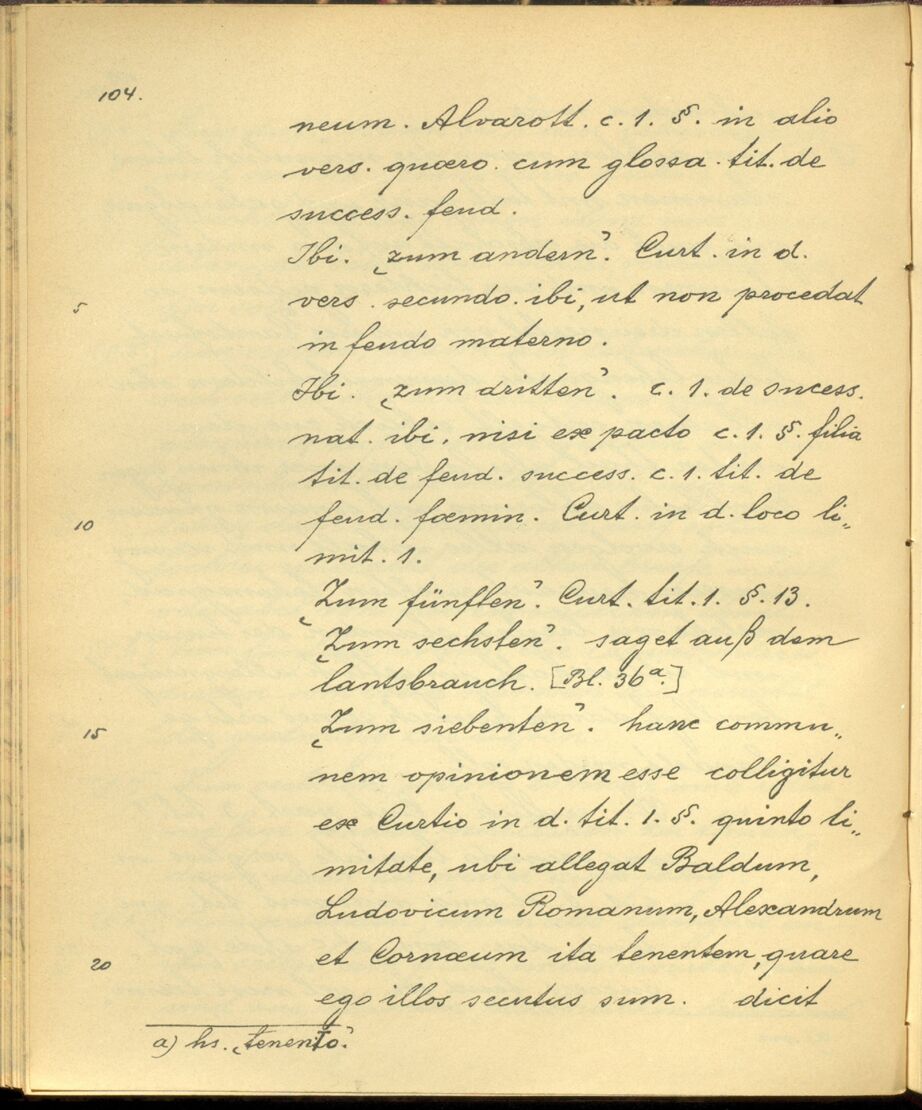 104.
neum. Alvarott. c. 1. §. in alio
vers. quæro. cum glossa. tit. de
success. feud.
Ibi. „zum andern”. Curt. in d.
5 vers. secundo. ibi, ut non procedat
in feudo materno.
Ibi. „zum dritten”. c. 1. de sucess.
nat. ibi. nisi ex pacto c. 1. §. filia
tit. de feud. success. c. 1. tit. de
10 feud. fœmin. Curt. in d. loco li„
mit. 1.
„Zum fünften”. Curt. tit. 1. §. 13.
„Zum sechsten”. saget auß dem
lantsbrauch. [Bl. 36a.]
15 „Zum siebenten”. hanc commu„
nem opinionem esse colligitur
ex Curtio in d. tit. 1. §. quinto li„
mitate, ubi allegat Baldum,
Ludovicum Romanum, Alexandrum
20 et Cornœum ita tenentem, quare
ego illos secutus sum. dicit
a) hs. „tenento”.